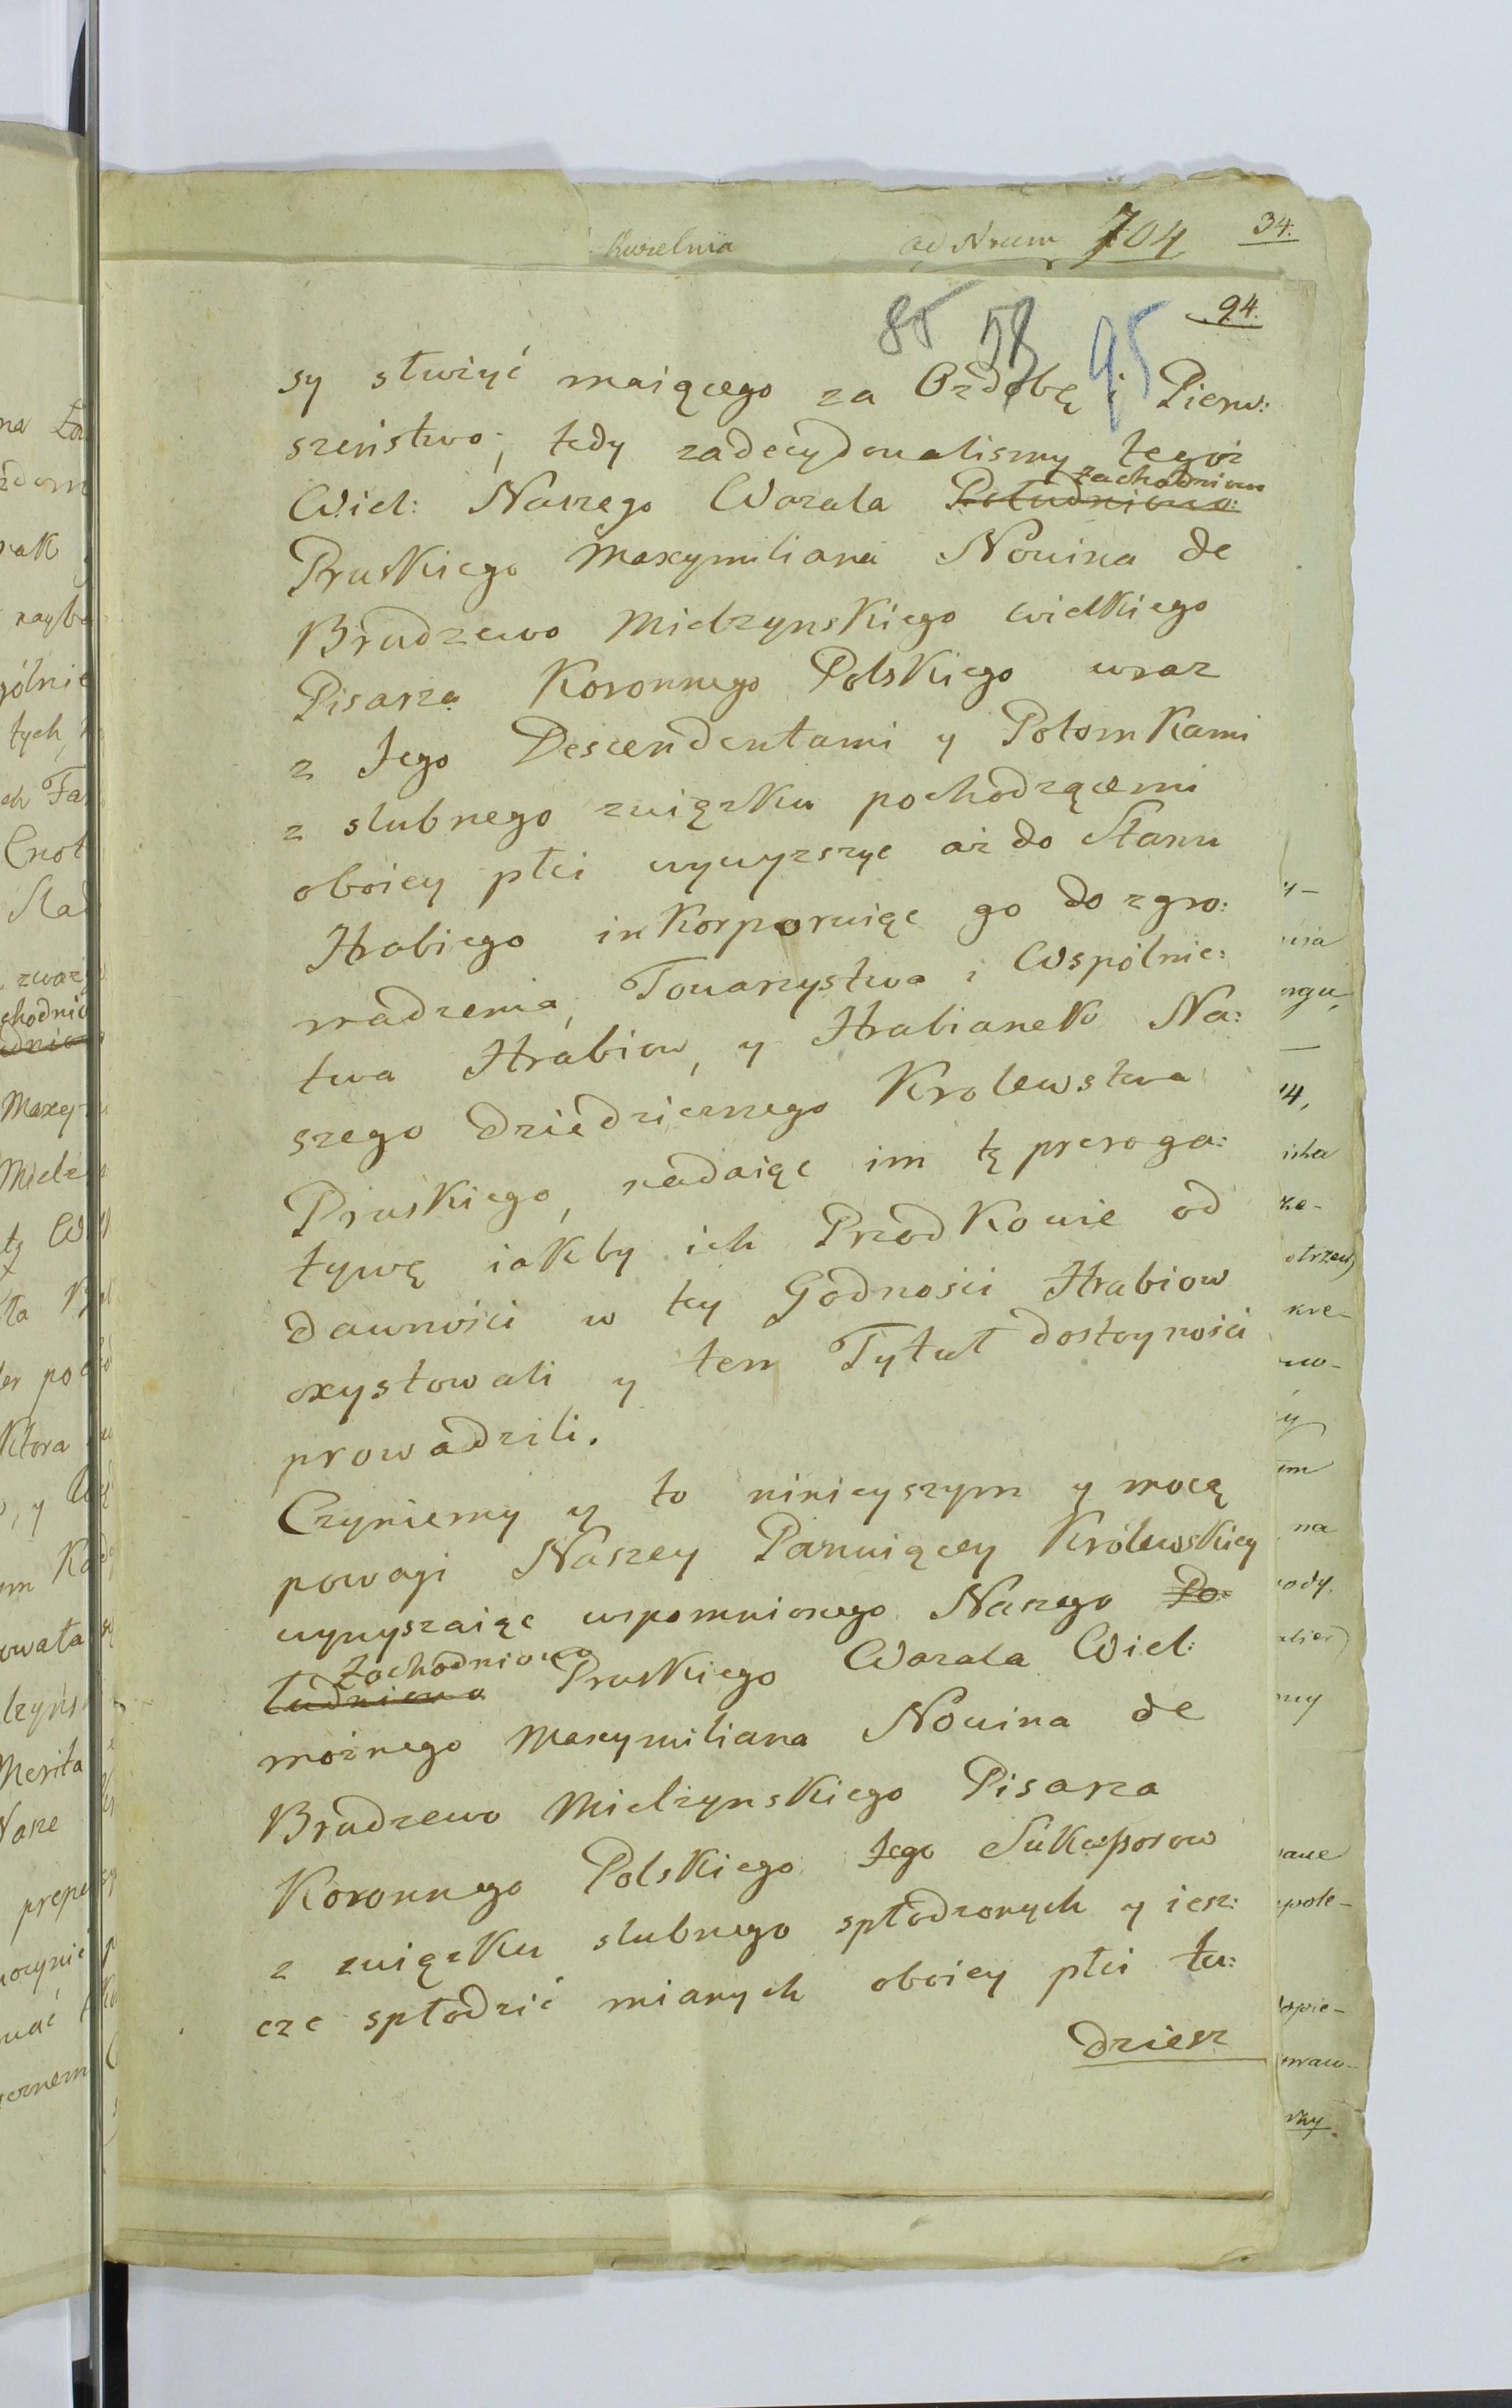 Kuźelnia ad Nrum 704 34.
94.
85 58 95
sy słuzyć maiącego za Ozdobę i Pierw:
szeństwo; tedy zadecydowalismy tegoż
zachodniow
Wiel: Naszego Wazala Południowo:
Pruskiego Maxymiliana Nowina de
Brudzewo Mielzynskiego wielkiego
Pisarza Koronnego Polskiego wraz
z Jego Descendentami y Potomkami
z slubnego związku pochodzącemi
oboiey płci wywyzszyc aż do Stanu
Hrabiego inkorporuiąc go do zgro:
madzenia, Towarzystwa i Wspolnic:
twa Hrabiow, y Hrabianek Na:
szego dziedzicznego Krolewstwa
Pruskiego, nadaiąc im tę preroga:
tywę iakby ich Przodkowie od
dawności w tey Godności Hrabiow
exystowali y ten Tytuł dostoyności
prowadzili.
Czyniemy y to ninieyszym y mocą
powagi Naszey Panuiącey Królewskiey
wywyszaiąc wspomnionego Naszego Po:
Zachodniowo
łudniowo Pruskiego Wazala Wiel:
możnego Maxymiliana Nowina de
Brudzewo Mielzynskiego Pisarza
Koronnego Polskiego Jego Sukcessorow
z związku slubnego spłodzonych y iesz:
cze spłodzić mianych oboiey płci tu:
dziesz